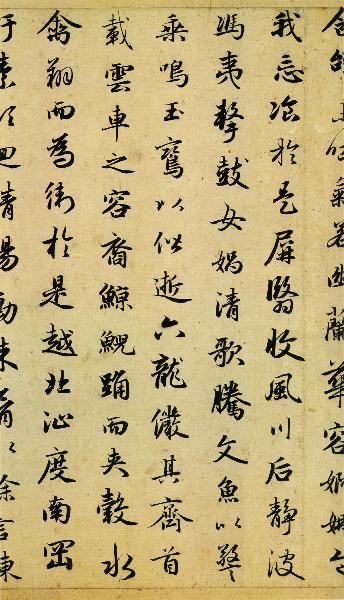 含辭未吐氣若幽蘭華容婀娜令
我忘飡於是屏翳收風川后靜波
馮夷擊鼓女媧清歌騰文魚以警
乘鳴玉鸞以偕逝六龍儼其齊首
載雲車之容裔鯨鯢踊而夾轂水
禽翔而為衛於是越北沚度南岡
紆素領迴清陽動朱脣以徐言陳